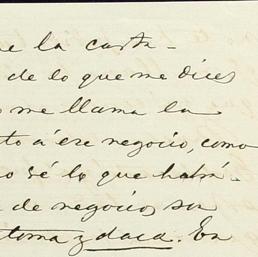 e la carta-
de lo que me dices
me llama la
to á ese negocio, como
o sé lo que habrá-
de negocios son
toma y daca. En